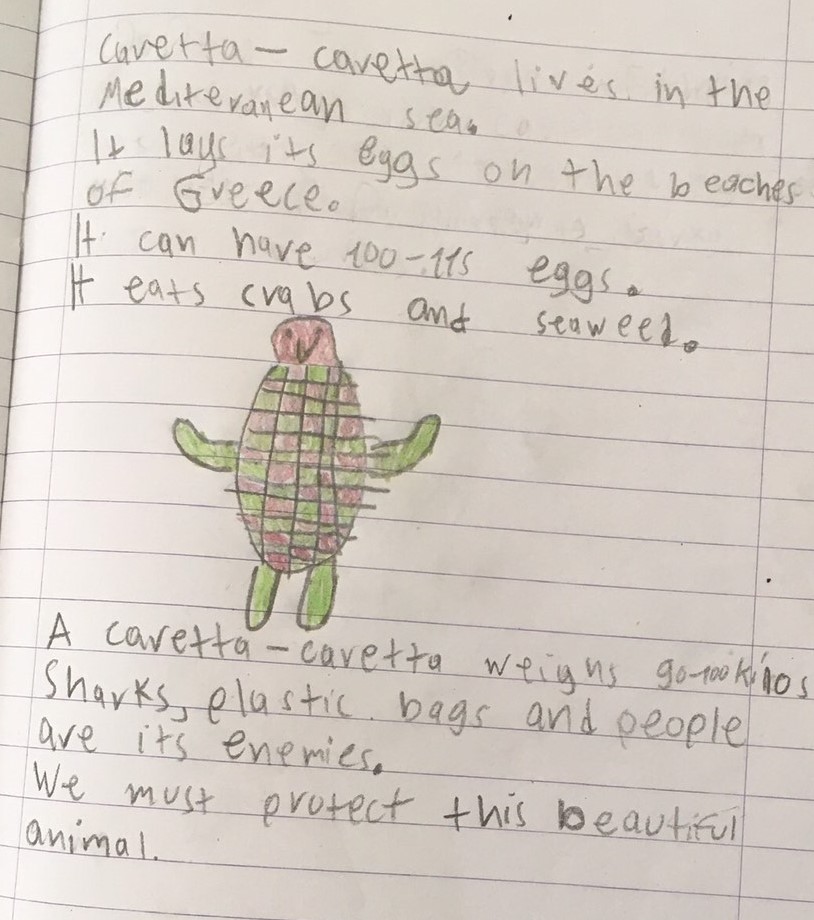 Caretta - caretta lives in the
Mediteranean sea.
It lays its eggs on the beaches
of Greece.
It can have 100-115 eggs.
It eats crabs and seaweed.
A caretta - caretta weighs 90-100 kilos
Sharks, plastic bags and people
are its enemies.
We must protect this beautiful
animal.